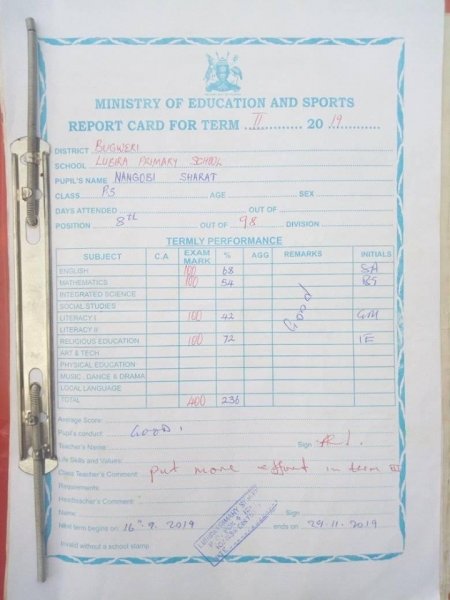 MINISTRY OF EDUCATION AND SPORTS
REPORT CARD FOR TERM II 20 19
DISTRICT BUGWERI
SCHOOL LUBIRA PRIMARY SCHOOL
PUPIL'S NAME NANGOBI SHARAT
CLASS P.3 AGE SEX
DAYS ATTENDED OUT OF
POSITION 8th OUT OF 98 DIVISION
TERMLY PERFORMANCE
SUBJECT C.A EXAM MARK % AGG REMARKS INITIALS
ENGLISH 100 68 SA
MATHEMATICS 100 54 BS
INTEGRATED SCIENCE
SOCIAL STUDIES
LITERACY I 100 42 Good GM
LITERACY II
RELIGIOUS EDUCATION 100 72 IE
ART & TECH
PHYSICAL EDUCATION
MUSIC, DANCE & DRAMA
LOCAL LANGUAGE
TOTAL 400 236
Average Score:
Pupil's conduct: GOOD.
Teacher's Name: Sign
Life Skills and Values:
Class Teacher's Comment: put more effort in term III
Requirements:
Headteacher's Comment:
Name: Sign
Next term begins on 16th 9. 2019 ends on 29. 11. 2019
Invalid without a school stamp